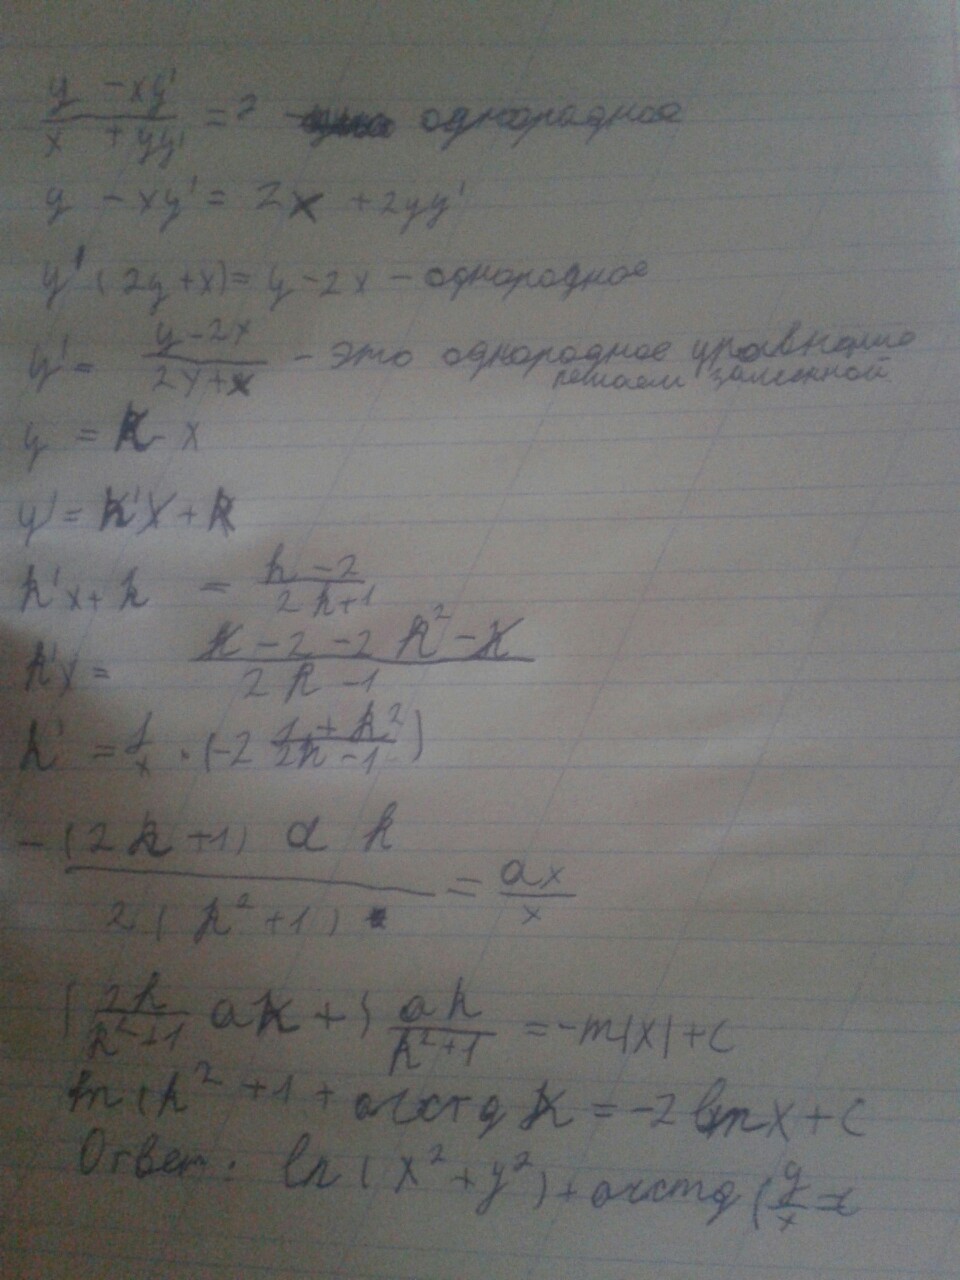 (y - xy')/(x + yy') = 2 однородное
y - xy' = 2x + 2yy'
y'(2y+x) = y - 2x - однородное
y' = (y-2x)/(2y+x) - это однородное уравнение
решаем заменой
y = k · x
y' = k'x + k
k'x + k = (k-2)/(2k+1)
k'x = (k - 2 - 2k² - k)/(2k - 1)
k' = 1/x · (-2 (1+k²)/(2k-1))
-(2k+1) dk/2(k²+1) = dx/x
∫ 2k/(k²+1) dk + ∫ dk/(k²+1) = -ln|x| + c
ln(k² + 1 + arctg k = -2 ln x + c
Ответ: ln(x² + y²) + arctg (y/x = c